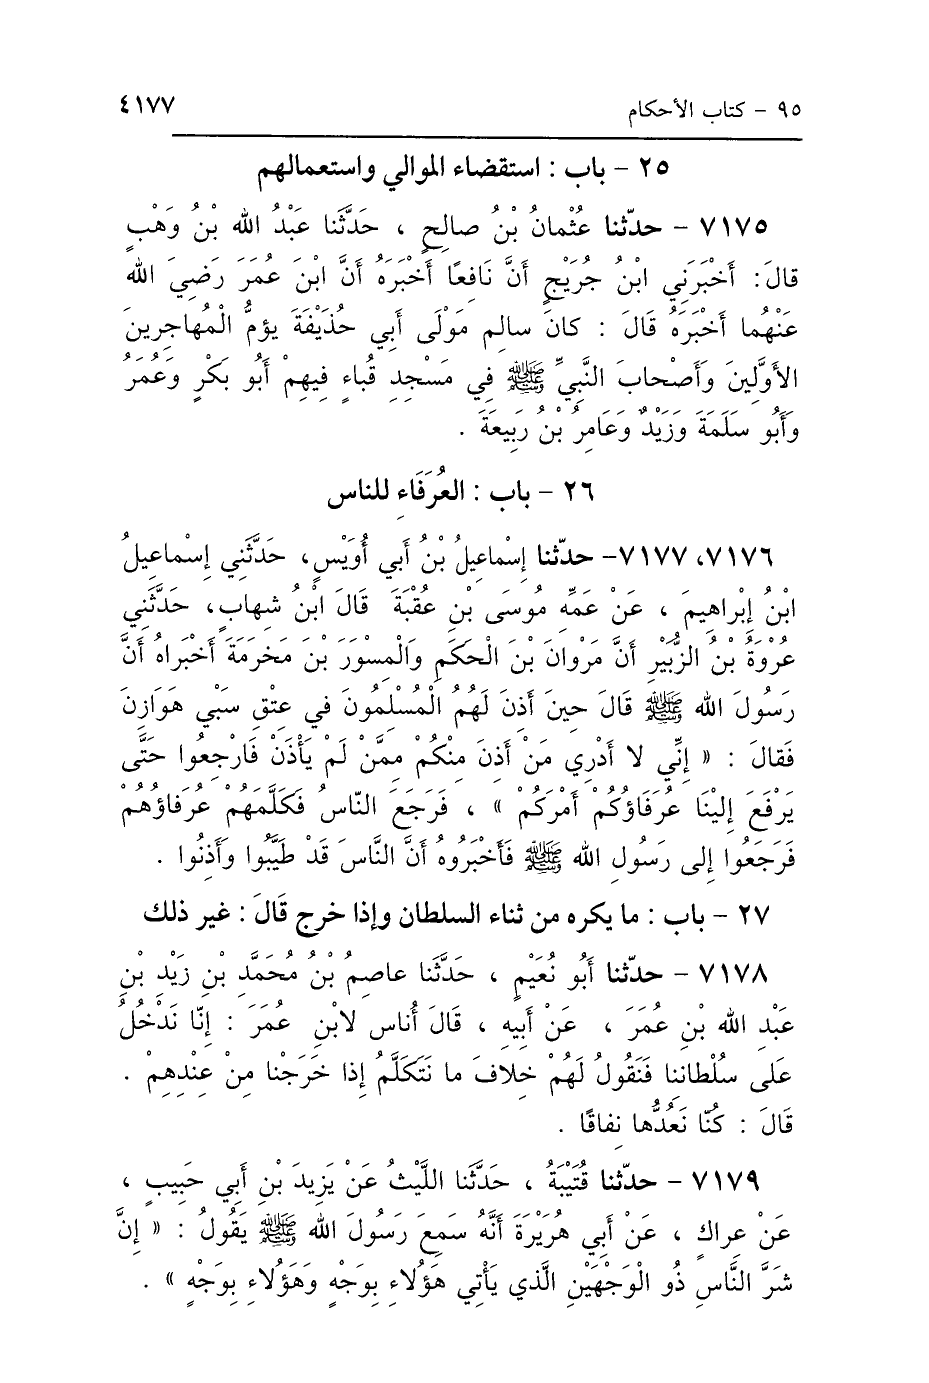 ٩٥ - كتاب الأحكام ٤١٧٧
٢٥ - باب : استقضاء الموالي واستعمالهم
٧١٧٥ - حدّثنا عُثْمانُ بْنُ صالِحٍ ، حَدَّثَنا عَبْدُ الله بْنُ وَهْبٍ
قالَ: أخْبَرَنِي ابْنُ جُرَيْجٍ أنَّ نَافِعًا أخْبَرَهُ أنَّ ابْنَ عمَرَ رَضِيَ الله
عَنْهُما أخْبَرَهُ قَالَ : كانَ سالِم مَوْلَى أبي حُذَيْفَةَ يؤمُّ الْمُهاجِرِينَ
الأوَّلِينَ وَأَصْحابَ النَّبيِّ ﷺ فِي مَسْجِدِ قُباء فِيهِمْ أبُو بَكْرٍ وعُمَرُ
وَأَبُو سَلَمَةَ وَزَيْدٌ وَعَامِرُ بْنُ رَبِيعَةَ .
٢٦ - باب : العُرَفَاءِ للناس
٧١٧٦، ٧١٧٧- حدّثنا إسْماعِيلُ بْنُ أبي أُوَيْسٍ، حَدَّثَنِي إسْماعِيلُ
ابْنُ إبْراهِيمَ ، عَنْ عَمِّهِ مُوسَى بْنِ عُقْبَةَ قَالَ ابْنُ شهابٍ، حَدَّثَنِي
عُرْوَةُ بْنُ الزُّبَيْرِ أنَّ مَرْوانَ بْنَ الْحَكَمِ والْمِسْوَرَ بْنَ مَخرمَةَ أخْبَراهُ أنَّ
رَسُولَ الله ﷺ قَالَ حِينَ أذِنَ لَهُمُ الْمُسْلِمُونَ في عِتْقِ سَبْيِ هَوَازِنَ
فَقالَ : « إنِّي لا أدْرِي مَنْ أذِنَ مِنْكُمْ مِمَّنْ لَمْ يَأْذَنْ فَارْجِعُوا حَتَّى
يَرْفَعَ إلَيْنَا عُرَفَاؤُكُمْ أمْرَكُمْ » ، فَرَجَعَ النّاسُ فَكَلَّمَهُمْ عُرَفاؤُهُمْ
فَرَجَعُوا إلى رَسُولِ الله ﷺ فَأَخْبَرُوهُ أنَّ النَّاسَ قَدْ طَيَّبُوا وَأَذِنُوا .
٢٧ - باب : ما يكره من ثناء السلطان وإذا خرج قَالَ : غير ذلك
٧١٧٨ - حدّثنا أبُو نُعَيْمٍ ، حَدَّثَنا عاصِمُ بْنُ مُحَمَّدِ بْنِ زَيْدِ بْنِ
عَبْدِ الله بْنِ عُمَرَ ، عَنْ أبِيهِ ، قَالَ أُناس لابْنِ عمَرَ : إنّا نَدْخُلُ
عَلَى سُلْطاننا فَنَقُولُ لَهُمْ خِلافَ ما نَتَكَلَّمُ إذا خَرَجْنا مِنْ عِنْدِهِمْ .
قَالَ : كُنّا نَعُدُّها نِفاقًا .
٧١٧٩ - حدّثنا قُتَيْبَةُ ، حَدَّثَنا اللَّيْثُ عَنْ يَزِيدَ بْنِ أبي حَبِيبٍ ،
عَنْ عِراكٍ ، عَنْ أبي هُرَيْرَةَ أنَّهُ سَمِعَ رَسُولَ الله ﷺ يَقُولُ : « إنَّ
شَرَّ النَّاسِ ذُو الْوَجْهَيْنِ الَّذي يَأْتي هَؤُلاءِ بِوَجْهٍ وَهَؤُلاءِ بِوَجْهٍ » .